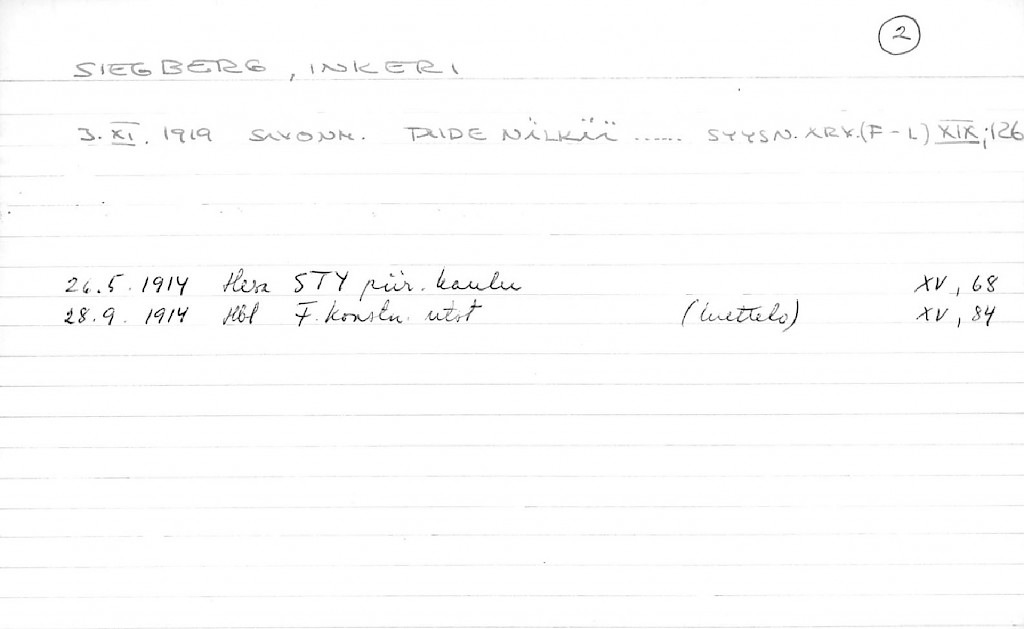 2
SIEGBERG, INKERI
3. XI. 1919 SAVONM. TAIDE NÄLKÄÄ ...... SYYSN. ARV. (F-L) XIX, 126
26.5. 1914 Hesa STY piir. koulu XV, 68
28.9. 1914 Hbl F. konstn. utst (luettelo) XV, 84